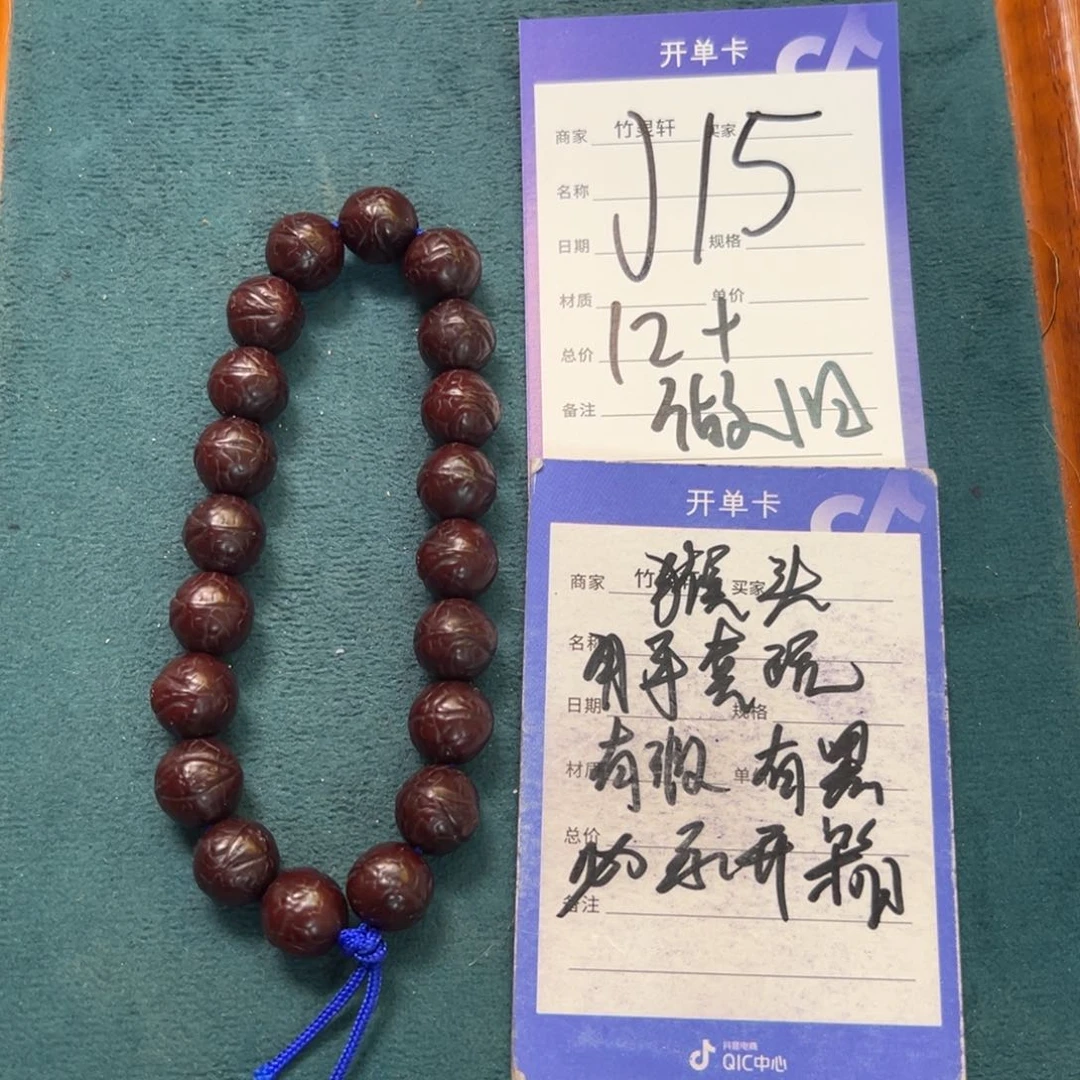 开单卡
商家 竹昱轩 买家
J15
名称
日期 规格
材质 单价
12+
总价
做旧
备注
开单卡
猴头
商家 竹 买家
名称
用手套玩
日期 规格
有瑕 有黑
材质 单
总价
备注
抖音电商
QIC中心